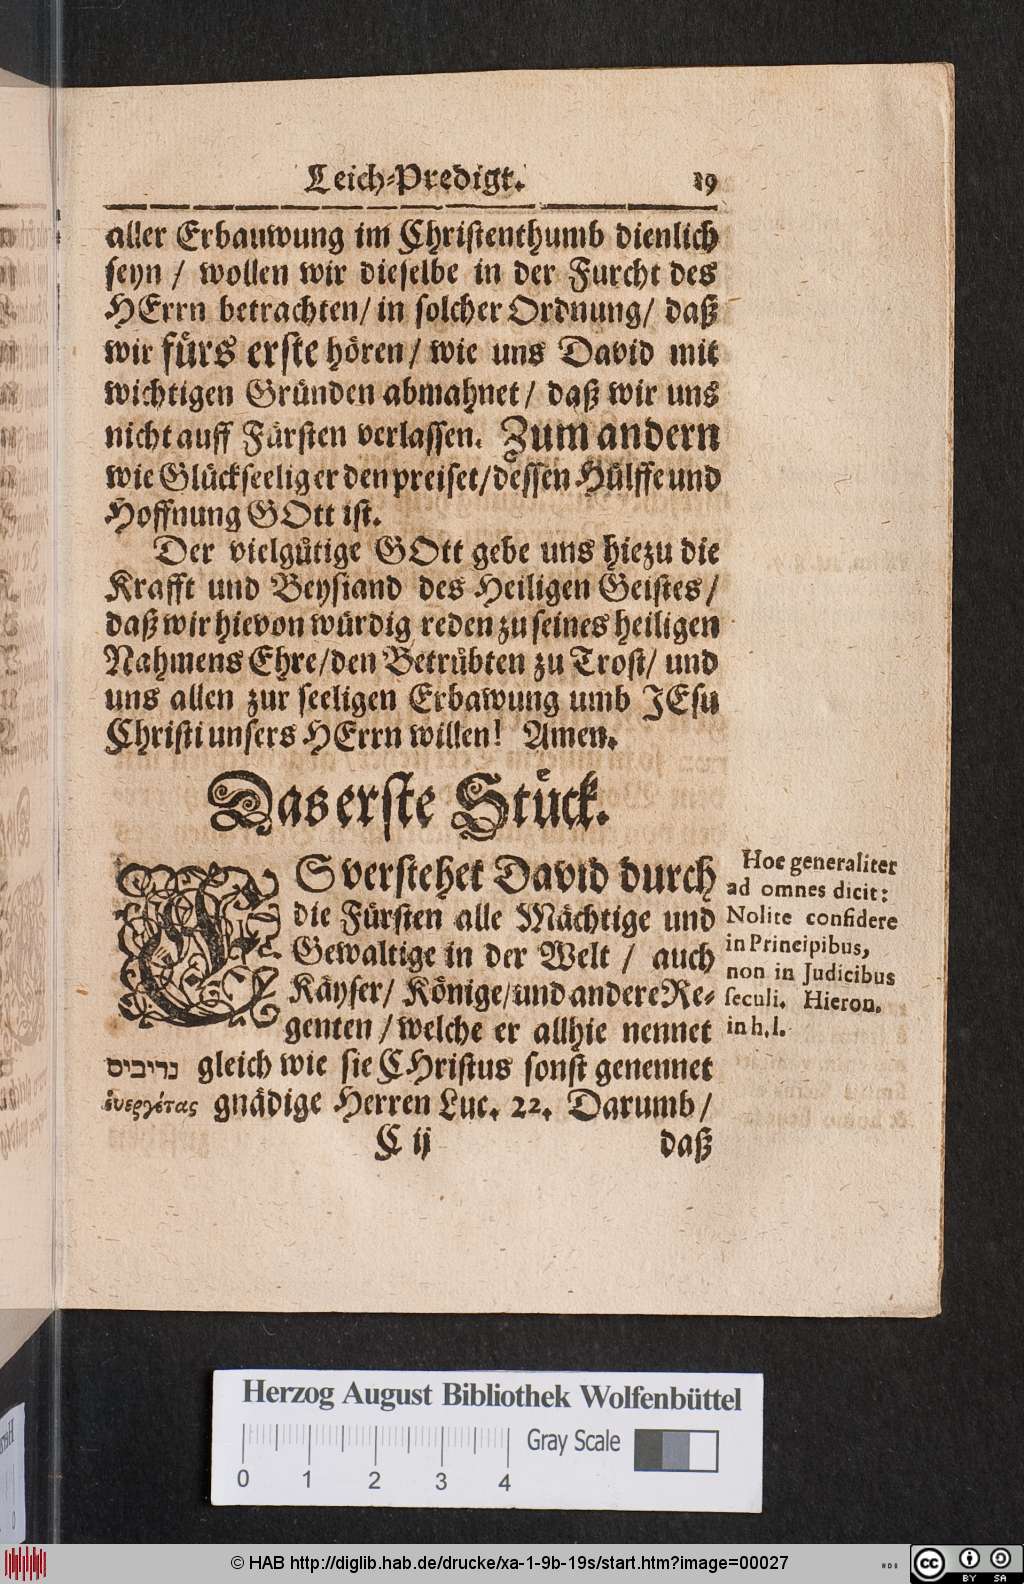 Leich-Predigt. 19
aller Erbauwung im Christenthumb dienlich
seyn / wollen wir dieselbe in der Furcht des
HErrn betrachten / in solcher Ordnung / daß
wir fürs erste hören / wie uns David mit
wichtigen Gründen abmahnet / daß wir uns
nicht auff Fürsten verlassen. Zum andern
wie Glückseelig er den preiset / dessen Hülffe und
Hoffnung GOtt ist.
Der vielgütige GOtt gebe uns hiezu die
Krafft und Beystand des Heiligen Geistes /
daß wir hievon würdig reden zu seines heiligen
Nahmens Ehre / den Betrübten zu Trost / und
uns allen zur seeligen Erbawung umb JEsu
Christi unsers HErrn willen! Amen.
Das erste Stück.
ES verstehet David durch
die Fürsten alle Mächtige und
Gewaltige in der Welt / auch
Käyser / Könige / und andere Re-
genten / welche er allhie nennet
נדיבים gleich wie sie CHristus sonst genennet
ἐυεργέτας gnädige Herren Luc. 22. Darumb /
C ij daß
Hoc generaliter
ad omnes dicit:
Nolite confidere
in Principibus,
non in Judicibus
seculi. Hieron.
in h. l.
Herzog August Bibliothek Wolfenbüttel
Gray Scale
0 1 2 3 4
© HAB http://diglib.hab.de/drucke/xa-1-9b-19s/start.htm?image=00027
cc BY SA